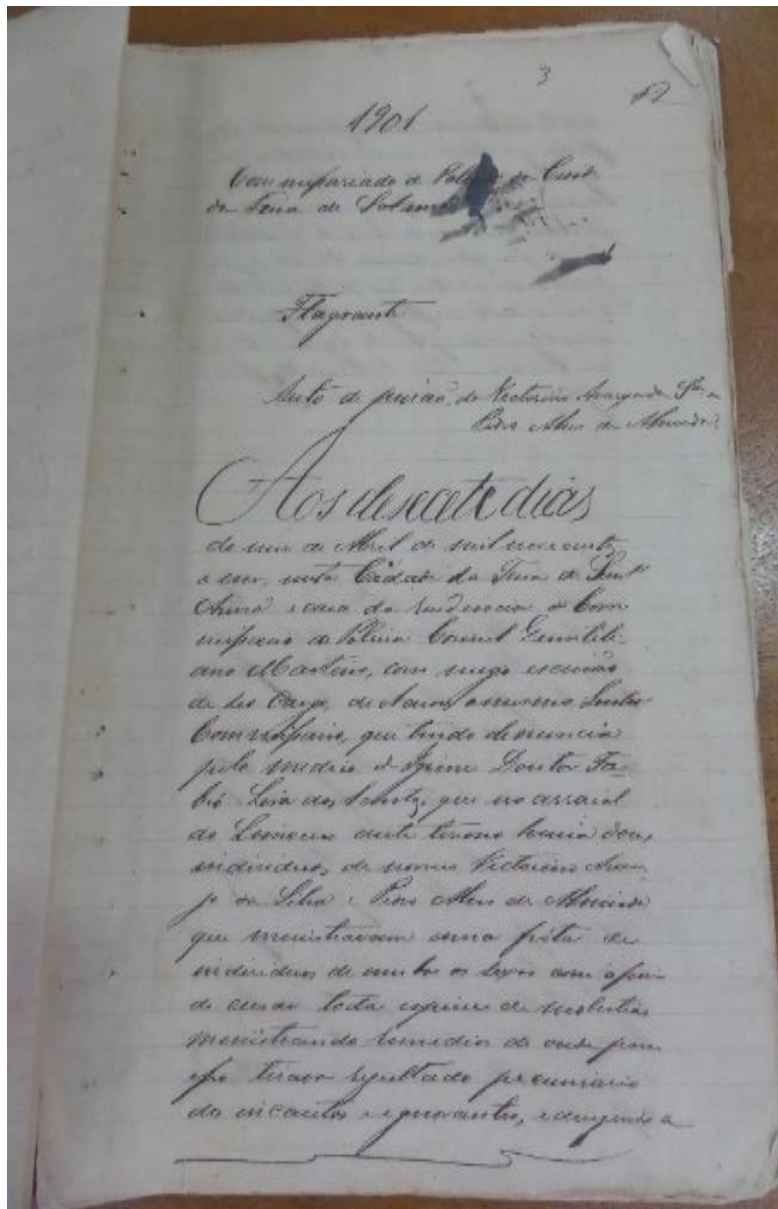 3
12
1901
Commissariado de Policia do
da Feira de
Flagrante
Auto de prisão, de Victorino Araujo da Sª e
Pedro Alves de Almeida
Aos desecete dias
do mez de Abril de mil nove centos
e um, nesta Cidade da Feira de Sant'
Anna e casa da residencia do Com
missario de Policia Coronel
ano Martins, com migo escrivão
de seo cargo, declarou o mesmo Senhor
Commissario, que tendo denuncia
pelo medico d'Hygiene Doutor Fa
bio Lira dos Santos, que no arraial
do Limoeiro deste termo havia dous
individuos, de nomes Victorino Arau
jo da Silva e Pedro Alves de Almeida
que menistravam uma
individuos de ambos os sexos com o fim
de curar toda especie de molestias
menistrando remedios de onde
tirava resultado pecuniario
dos incautos e ignorantes,